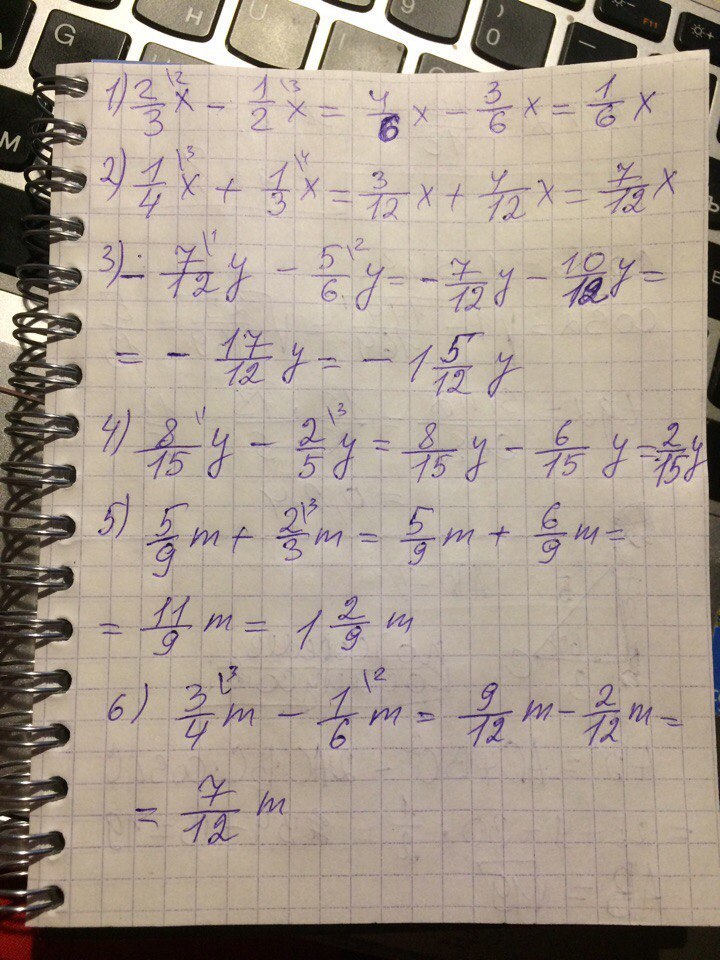 1) 2/3\2 x - 1/2\3 x = 4/6 x - 3/6 x = 1/6 x
2) 1/4\3 x + 1/3\4 x = 3/12 x + 4/12 x = 7/12 x
3) - 7/12\1 y - 5/6\2 y = - 7/12 y - 10/12 y =
= - 17/12 y = - 1 5/12 y
4) 8/15\1 y - 2/5\3 y = 8/15 y - 6/15 y = 2/15 y
5) 5/9 m + 2/3\3 m = 5/9 m + 6/9 m =
= 11/9 m = 1 2/9 m
6) 3/4\3 m - 1/6\2 m = 9/12 m - 2/12 m =
= 7/12 m